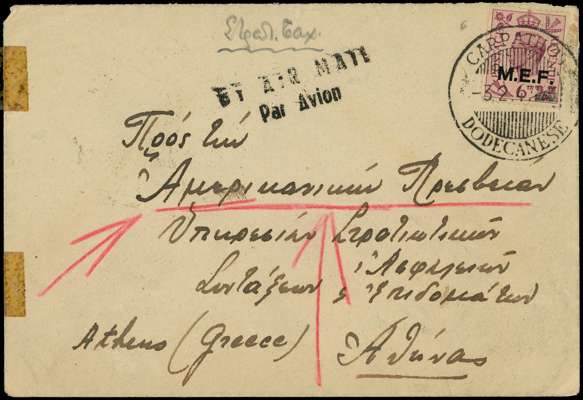 Στρατ. Ταχ.
BY AIR MAIL
Par Avion
CARPATHOS
M.E.F.
DODECANESE
Πρός τήν
Ἀμερικανικήν Πρεσβείαν
Ὑπηρεσίαν Στρατιωτικῶν
Ἀσφαλειῶν
Συντάξεων & Ἐπιδομάτων
Athens (Greece) Ἀθήνας